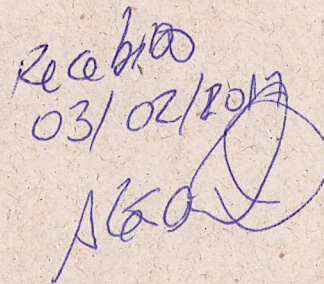 Recebido
03/02/2017